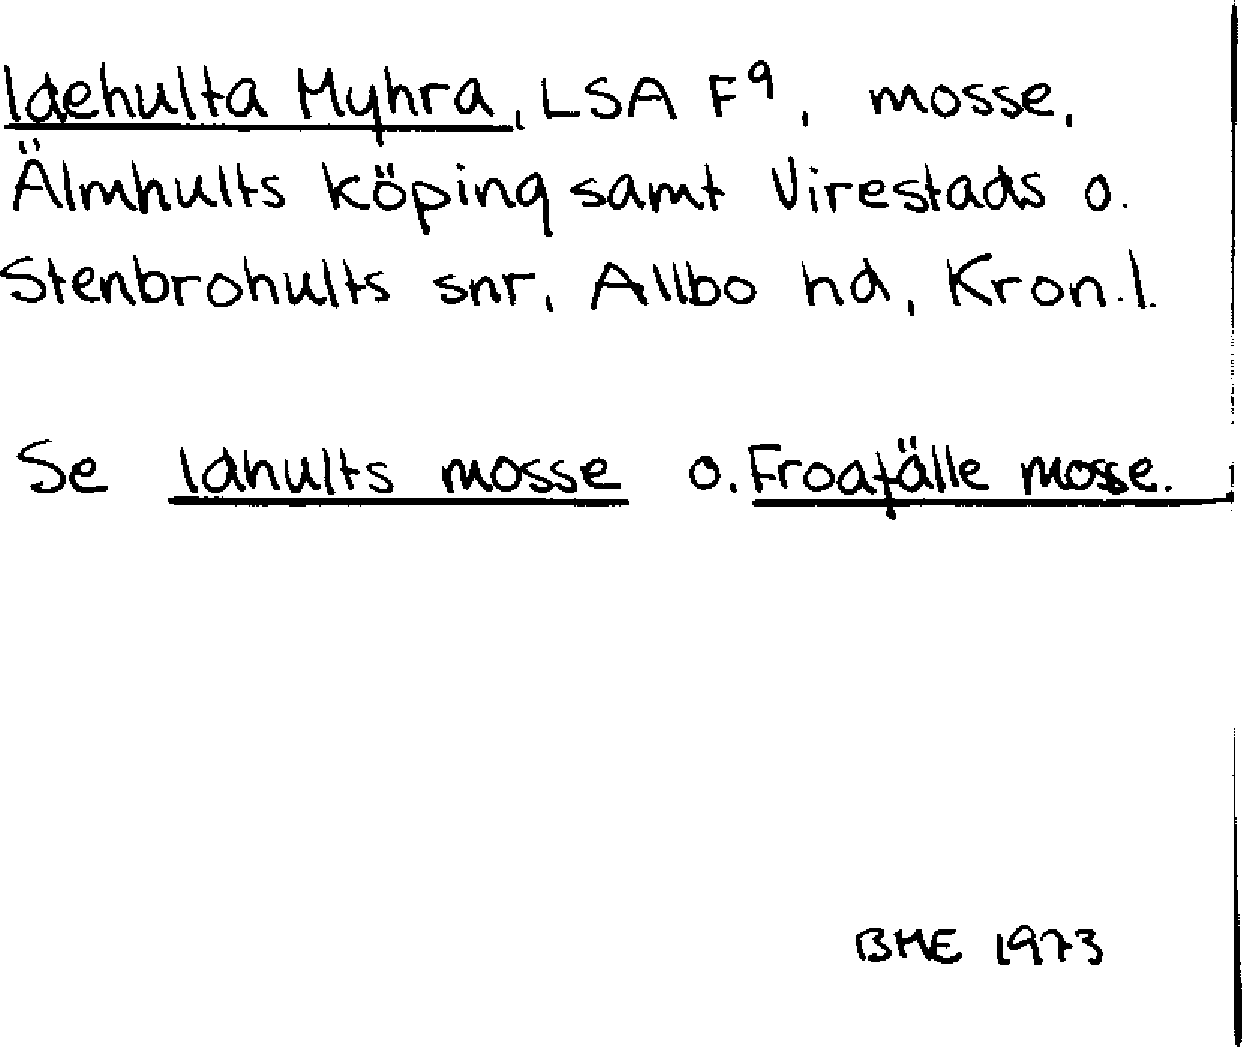 Idehulta Myhra, LSA F⁹, mosse,
Älmhults köping samt Virestads o.
Stenbrohults snr, Allbo hd, Kron.l.
Se Idhults mosse o. Froafälle mosse.
BME 1973